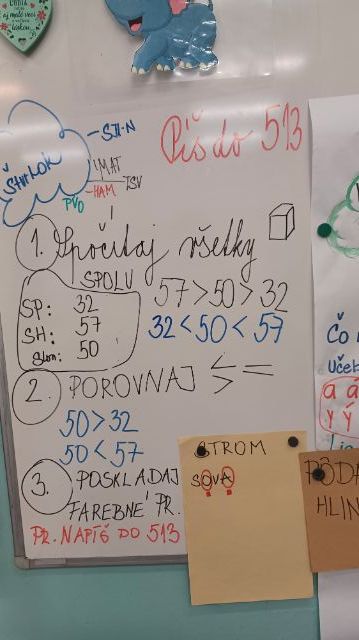 Píš do 513
ŠTVRTOK
SJL-N
MAT
HAM
TSV
PVO
1. Spočítaj všetky
SPOLU
SP: 32
SH: 57
Slon: 50
57 > 50 > 32
32 < 50 < 57
2. POROVNAJ < > =
50 > 32
50 < 57
3. POSKLADAJ
FAREBNÉ PR.
PR. NAPÍŠ DO 513
STROM
SOVA
PÔDA
HLIN
ČO
Učeb
a á
y ý